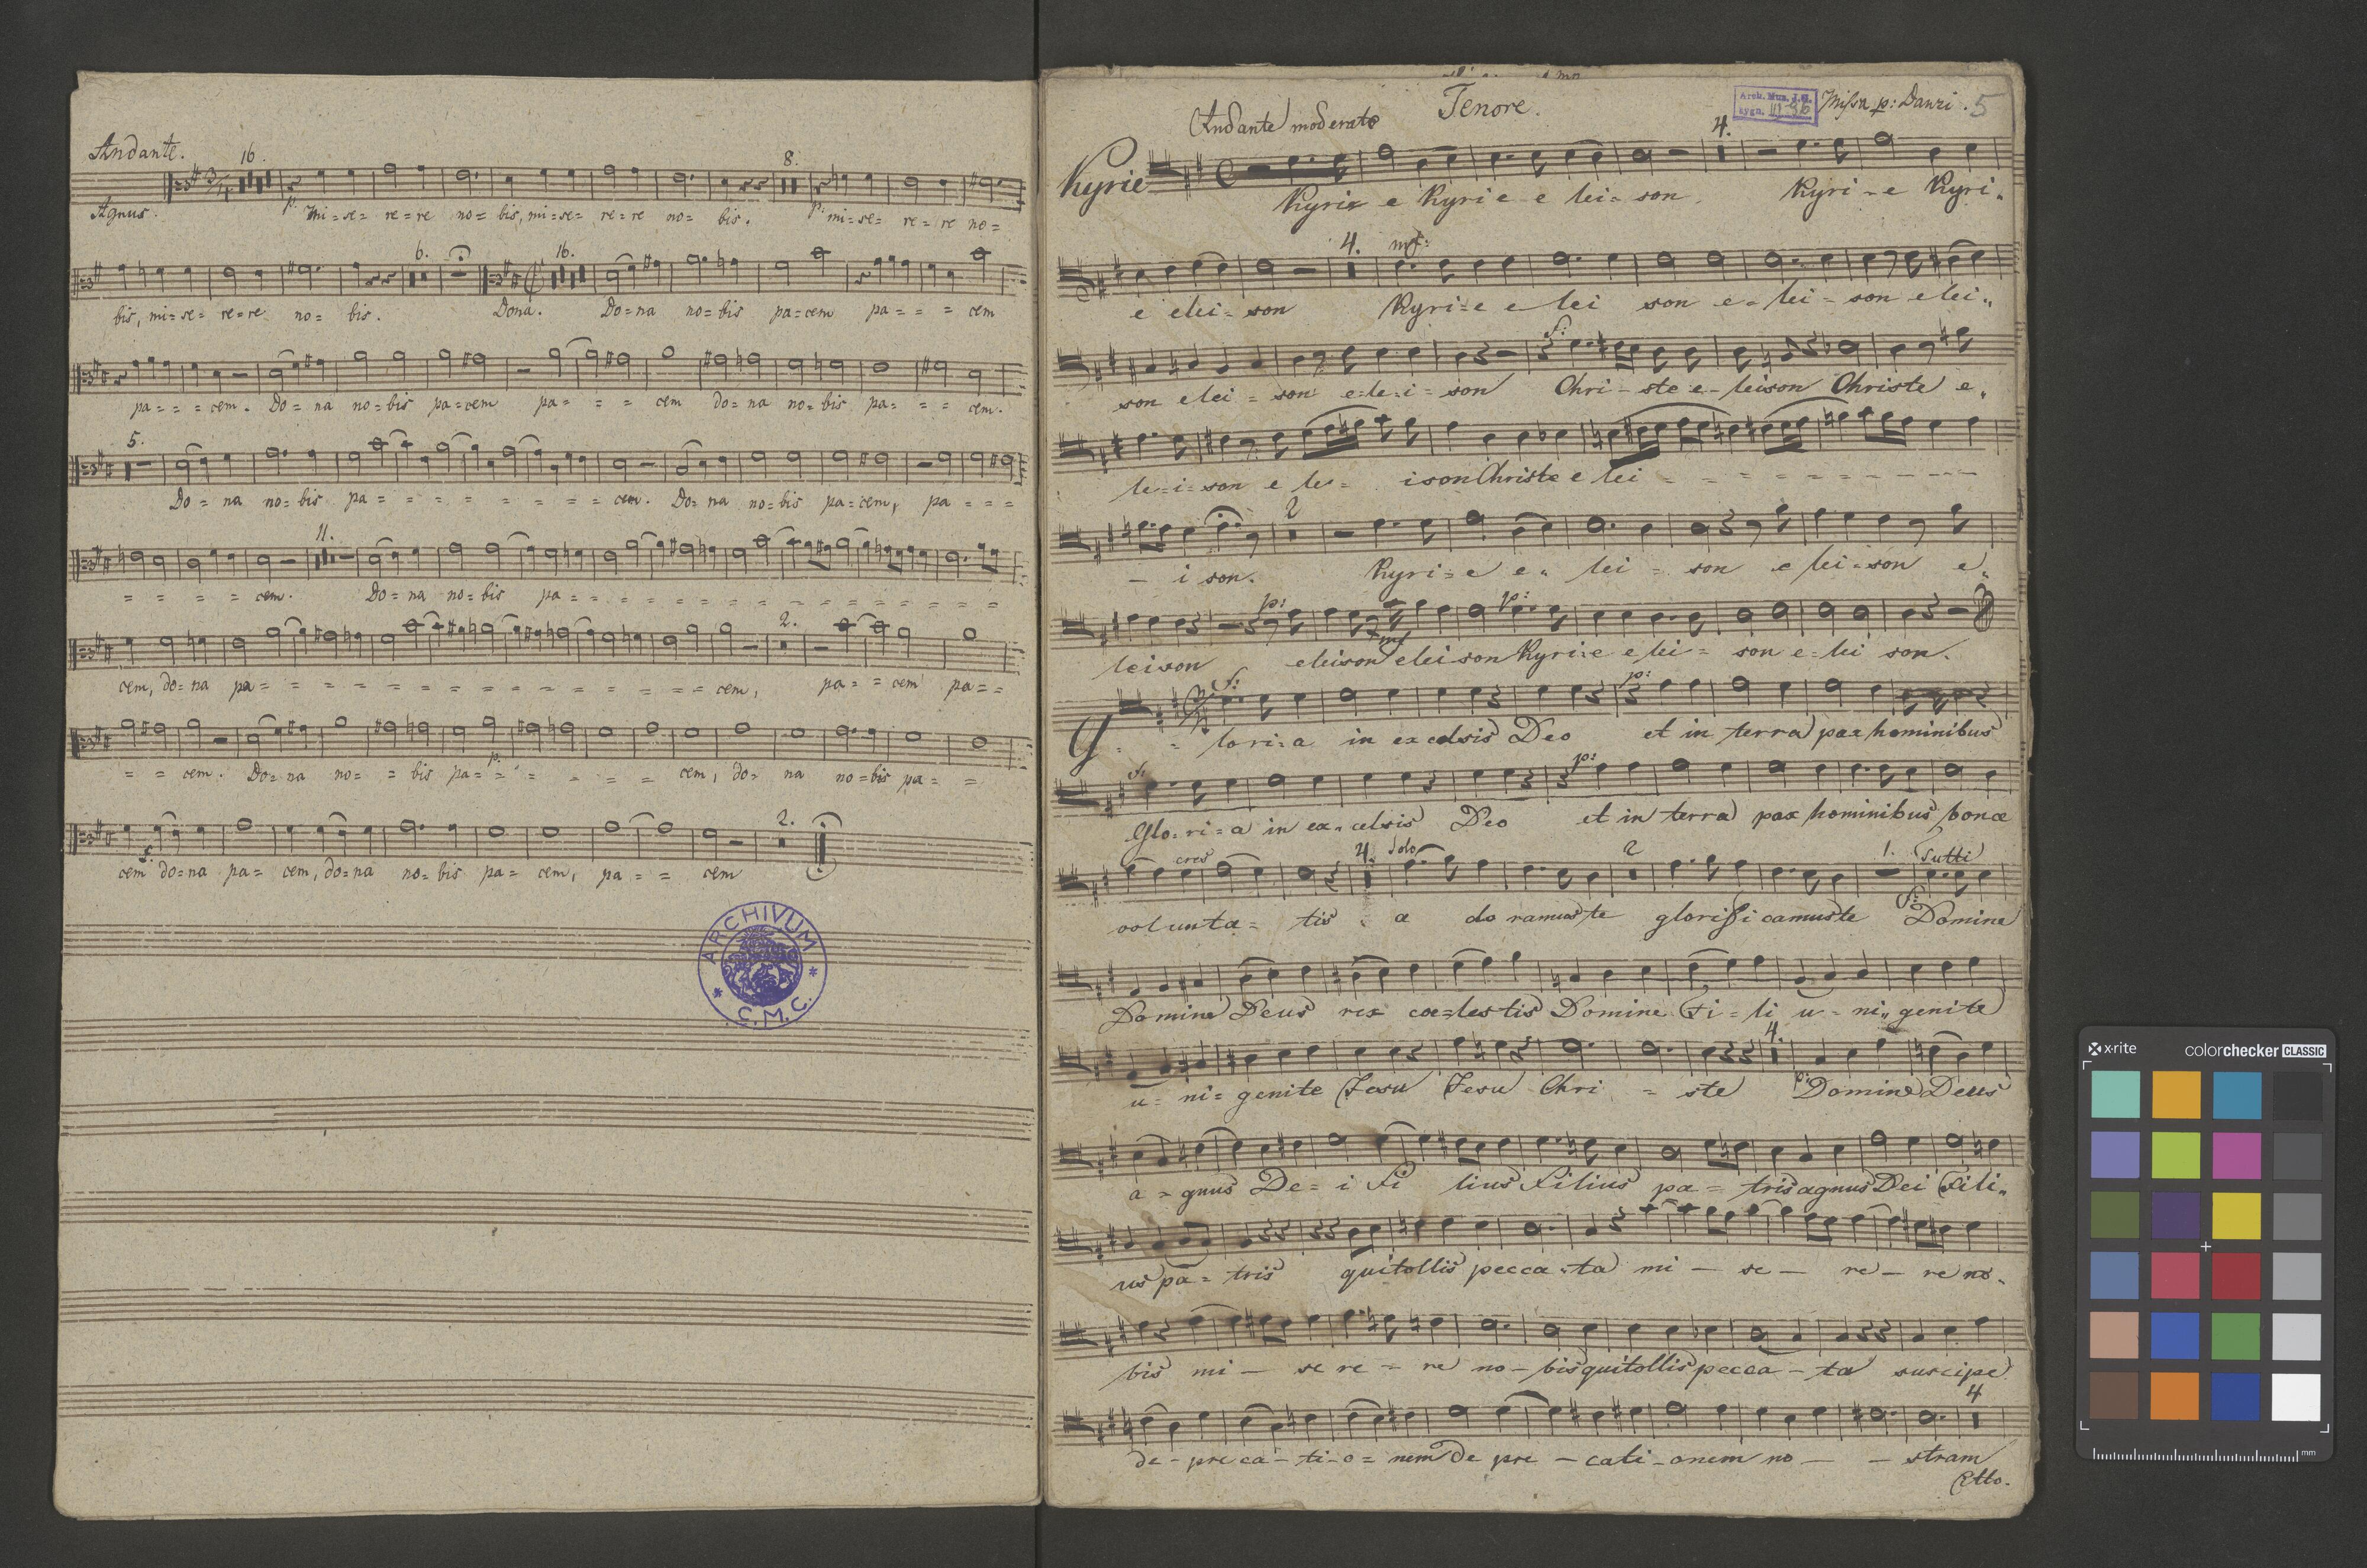 Andante.
16. 8.
Agnus. p: mi=se= re=re no= bis, mi=se= re=re no= bis. p: mi=se= re=re no=
6. 16.
bis, mi=se= re=re no= bis. Dona. Do=na no=bis pa=cem pa= = = cem
pa= = = cem. Do= na no=bis pa=cem pa= = = cem do=na no=bis pa= = = cem.
5.
Do= na no=bis pa= = = = = = = = cem. Do=na no=bis pa=cem, pa= = =
11.
= = = = cem. Do=na no=bis pa= = = = = = = = = = = = =
2.
cem, do=na pa= = = = = = = = = = = = = cem, pa= = cem pa= =
p:
= = cem. Do=na no= = bis pa= = = = = = cem, do= na no=bis pa= =
2.
f:
cem do=na pa= cem, do=na no=bis pa= cem, pa= = cem
ARCHIVUM
* C.M.C. *
Tenore.
Arch. Muz. J.G.
sygn. III-96
Missa p: Danzi. 5
Andante moderato
4.
Kyrie
Kyrie e Kyrie e lei=son. Kyri-e Kyri=
4. mf:
e elei=son Kyri=e e lei son e=lei-son elei=
f:
son elei=son e=le=i=son Chri-ste e-leison Christe e=
le=i=son e le= ison Christe e lei - - - - - - - - -
2
- i son. Kyri=e e= lei = son e lei=son e=
p: mf p:
leison eleison elei son Kyri=e e lei= son e=lei son.
f: p:
G loria in excelsis Deo et in terra pax hominibus
f: p:
Glo=ri=a in ex=celsis Deo et in terra pax hominibus bonæ
cres 4. Solo 2 1. Tutti
f:
volunta= tis a do ramus te glorifi camus te Domine
Domine Deus rex cœ=lestis Domine Fi-li u-ni=genite
4.
u= ni=genite Jesu Jesu Chri = ste p: Domine Deus
a = gnus De=i Fi lius Filius pa= tris agnus Dei Fili=
us pa= tris qui tollis pecca=ta mi - se - re - re no=
bis mi - se re = re no-bis qui tollis pecca-ta suscipe
4
de-pre ca-ti-o=nem de pre -cati-onem no - - stram
x·rite colorchecker CLASSIC
mm